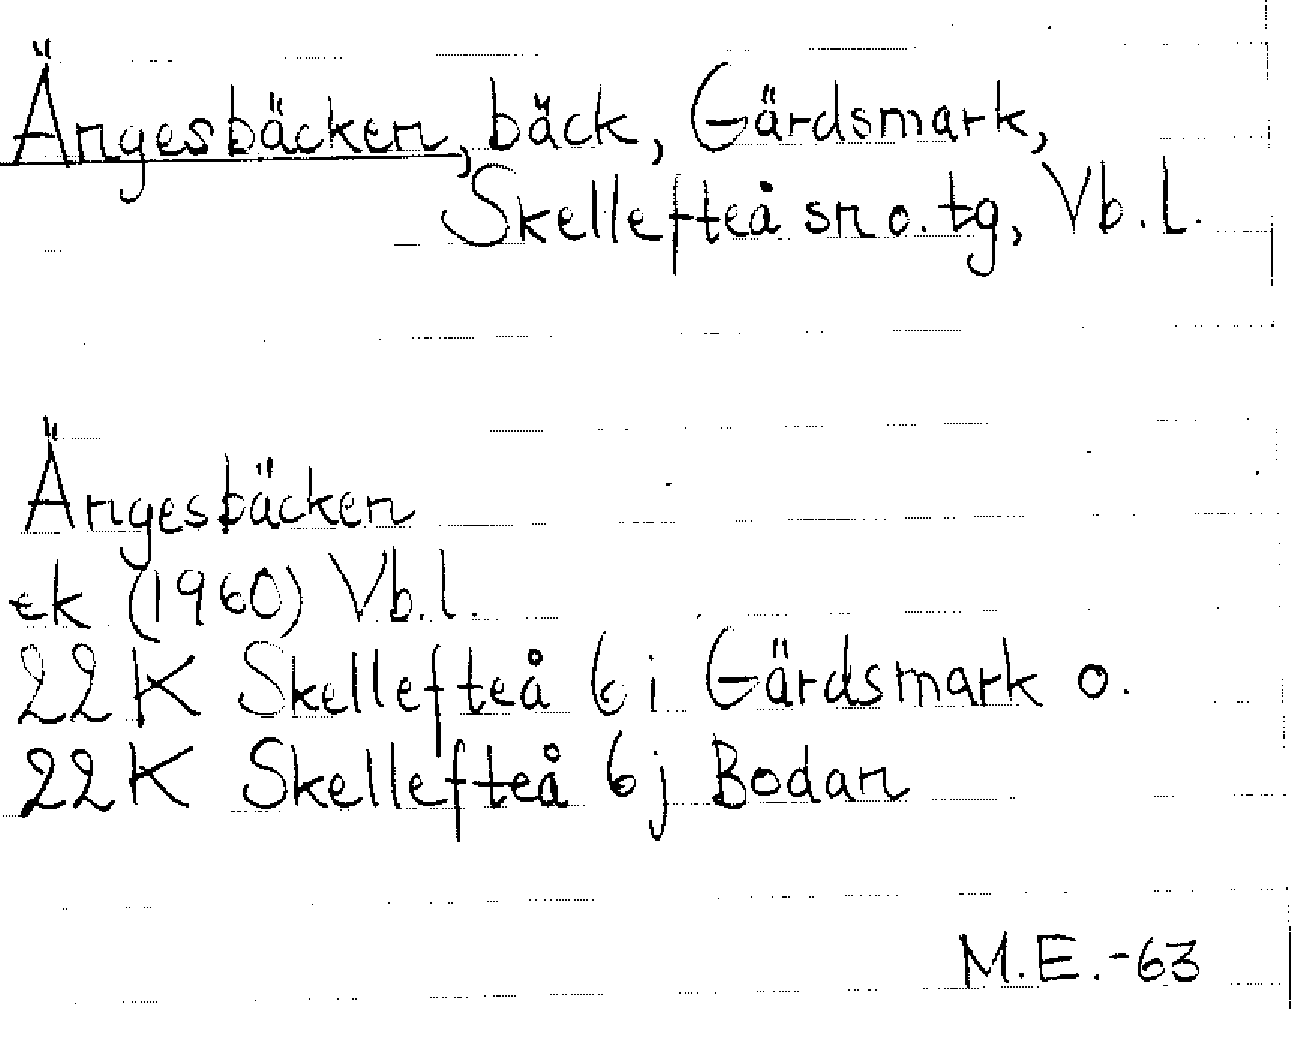 Ängesbäcken, bäck, Gärdsmark,
Skellefteå sn o. tg, Vb. l.
Ängesbäcken
ek (1960) Vb. l.
22K Skellefteå 6 i Gärdsmark o.
22K Skellefteå 6 j Bodan
M.E.-63